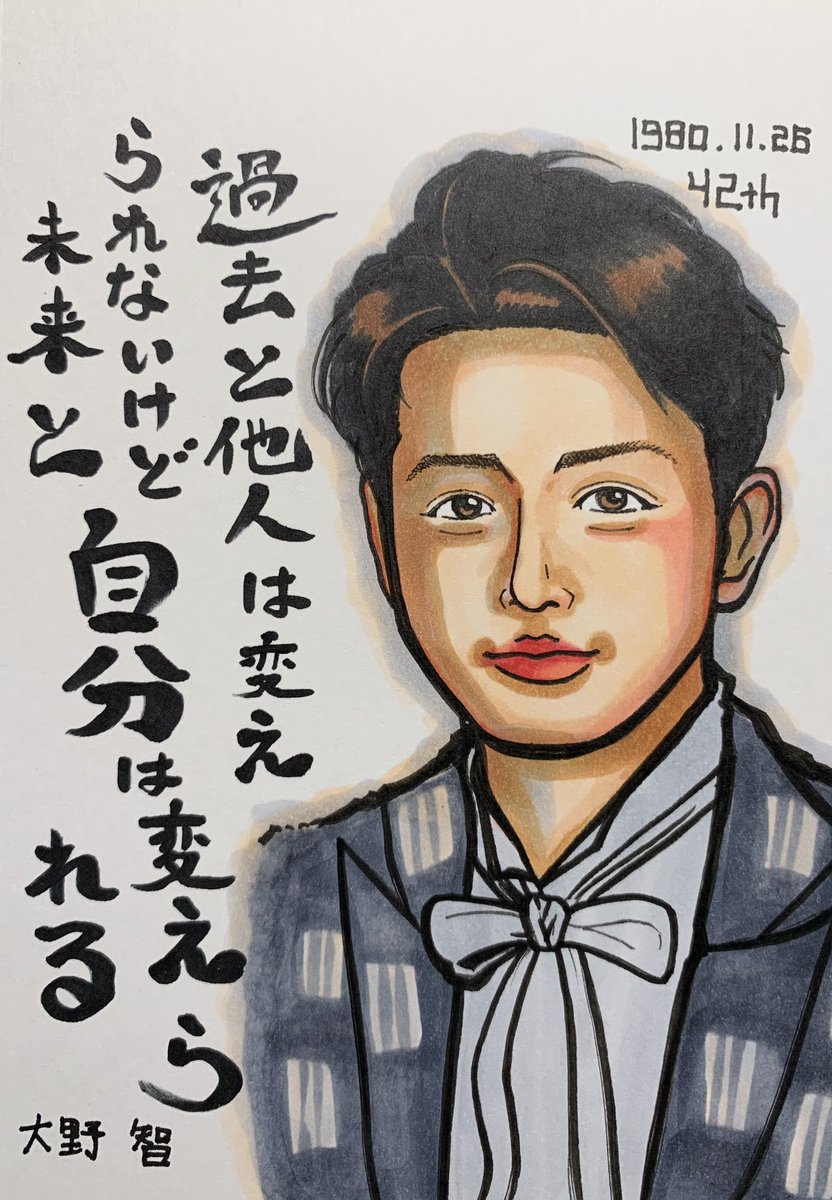 1980.11.26
42th
過去と他人は変え
られないけど
未来と
自分は変えら
れる
大野 智